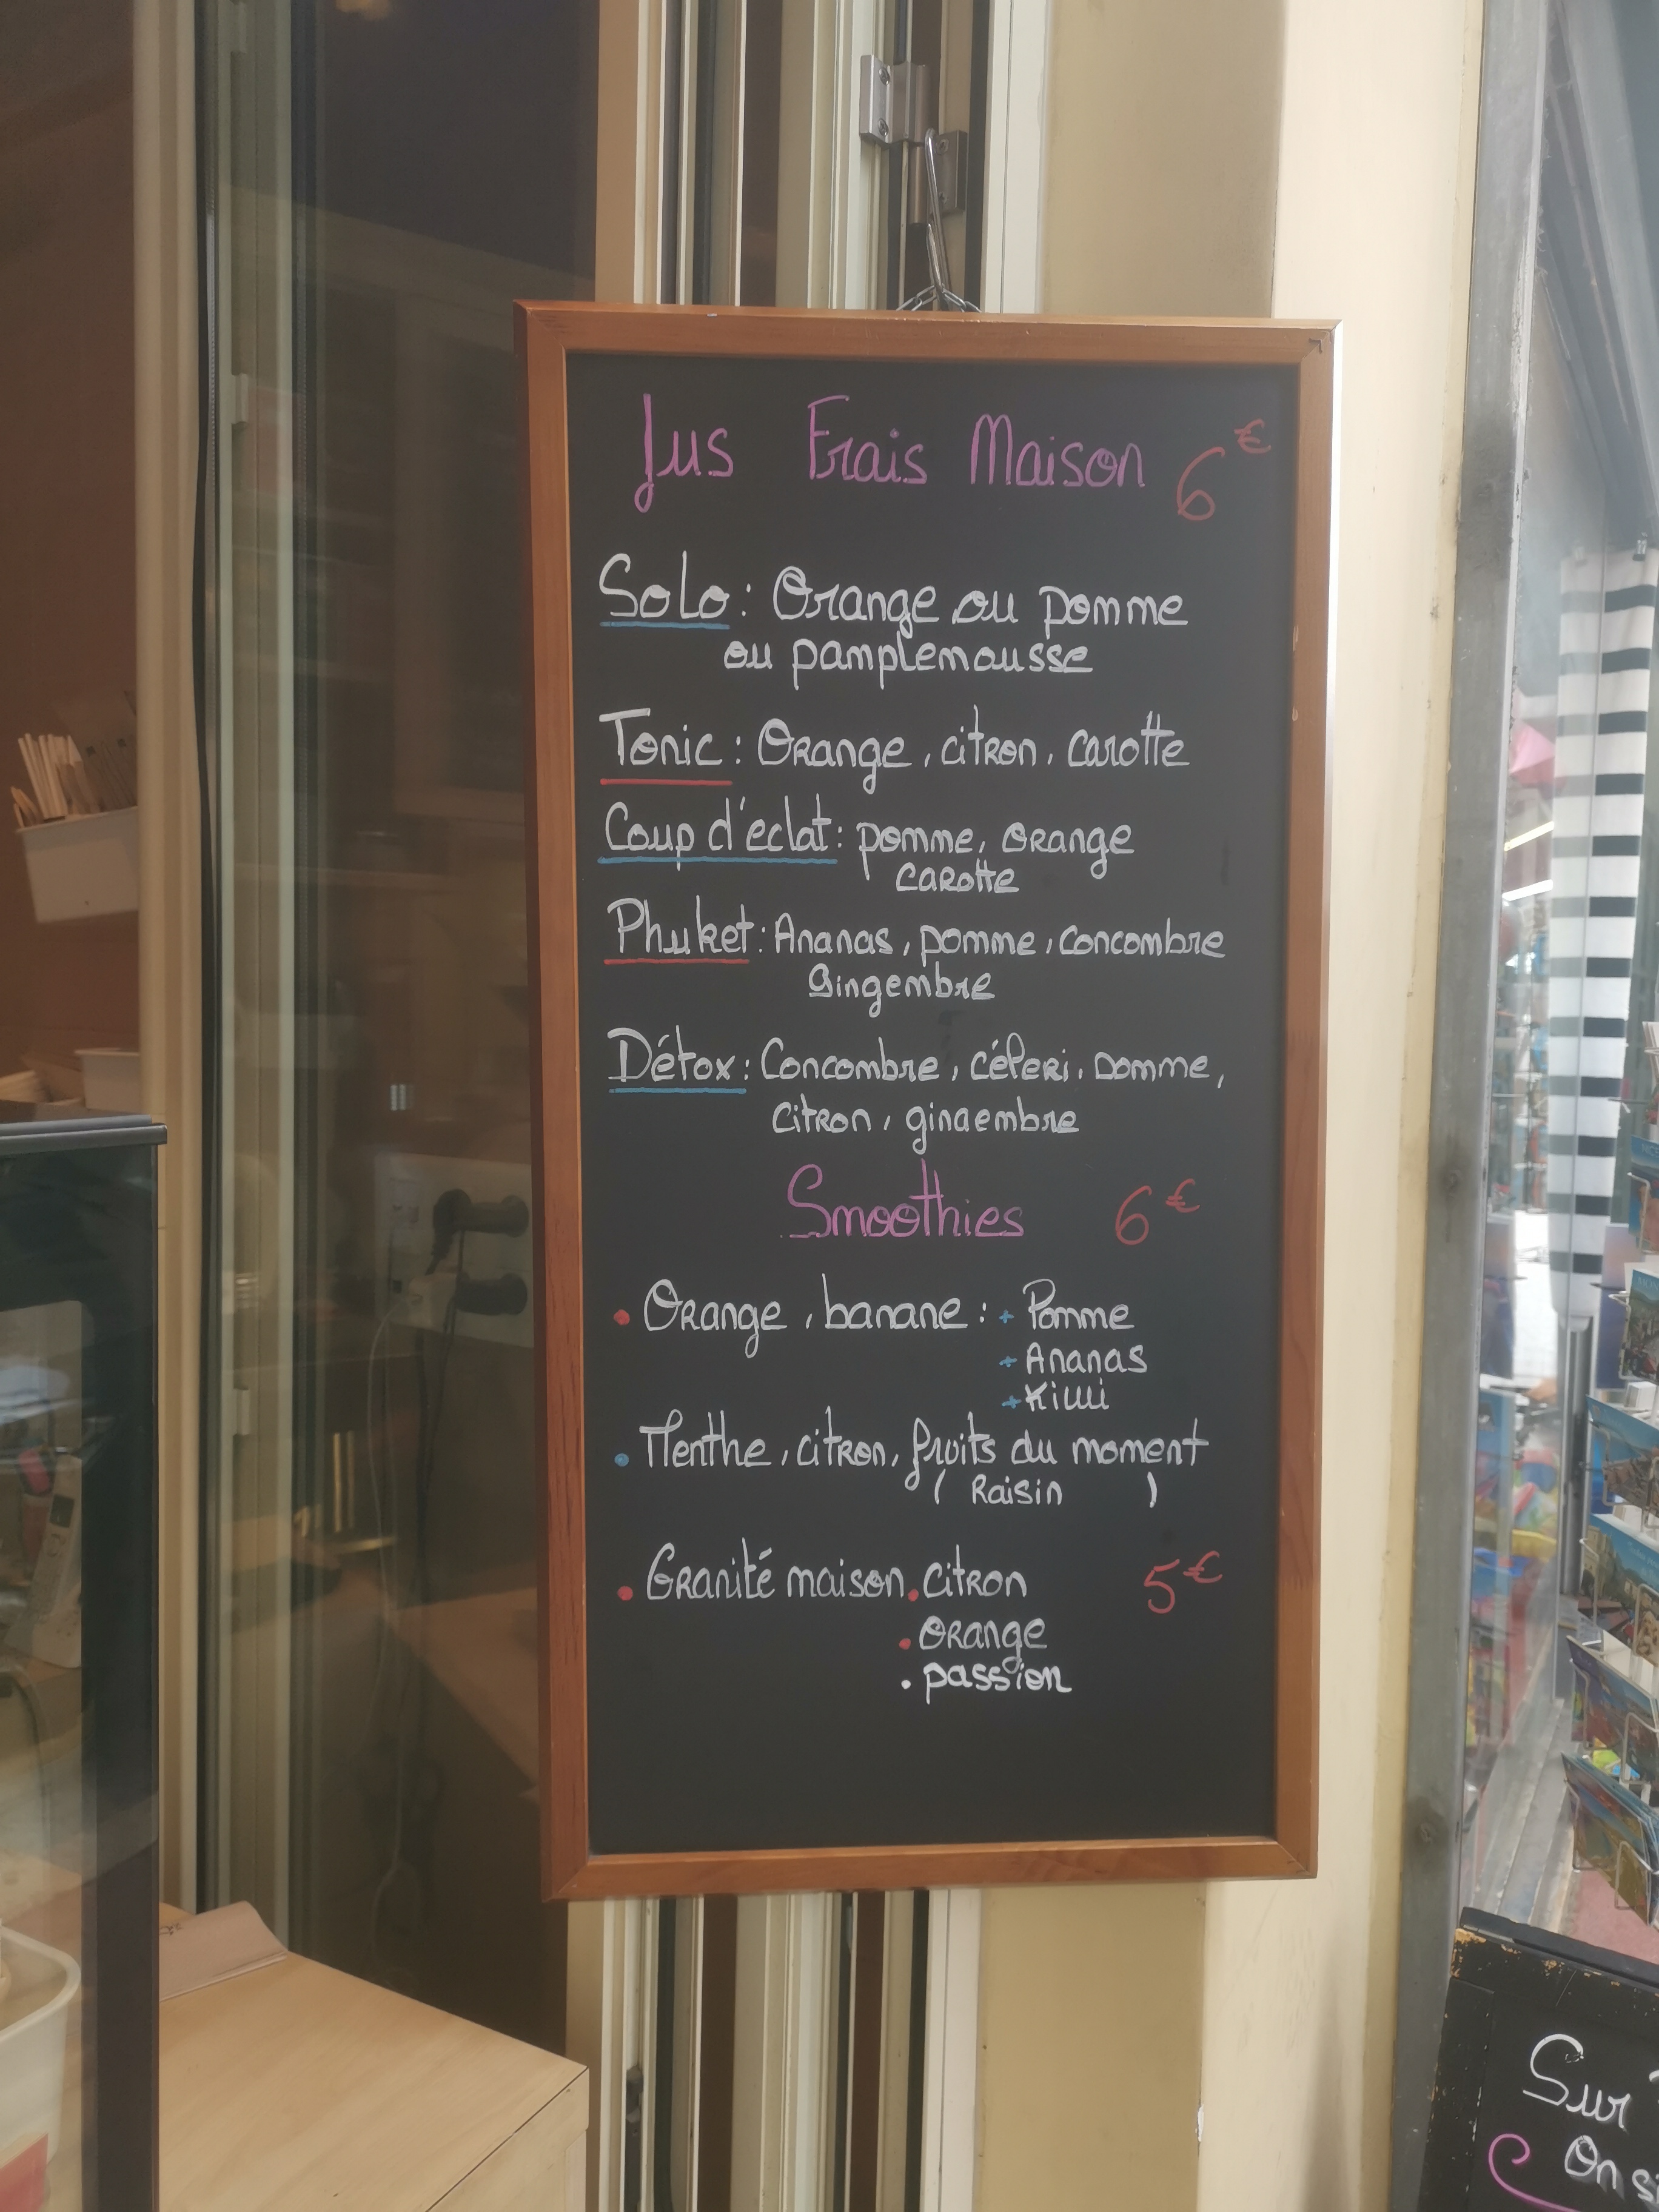 Jus Frais Maison 6€
Solo : Orange ou pomme
ou pamplemousse
Tonic : Orange, citron, carotte
Coup d'éclat : pomme, orange
carotte
Phuket : Ananas, pomme, concombre
Gingembre
Détox : Concombre, céleri, pomme,
citron, gingembre
Smoothies 6€
• Orange, banane : + Pomme
+ Ananas
+ Kiwi
• Menthe, citron, fruits du moment
( Raisin )
• Granité maison • citron 5€
• Orange
• passion
Sur
On